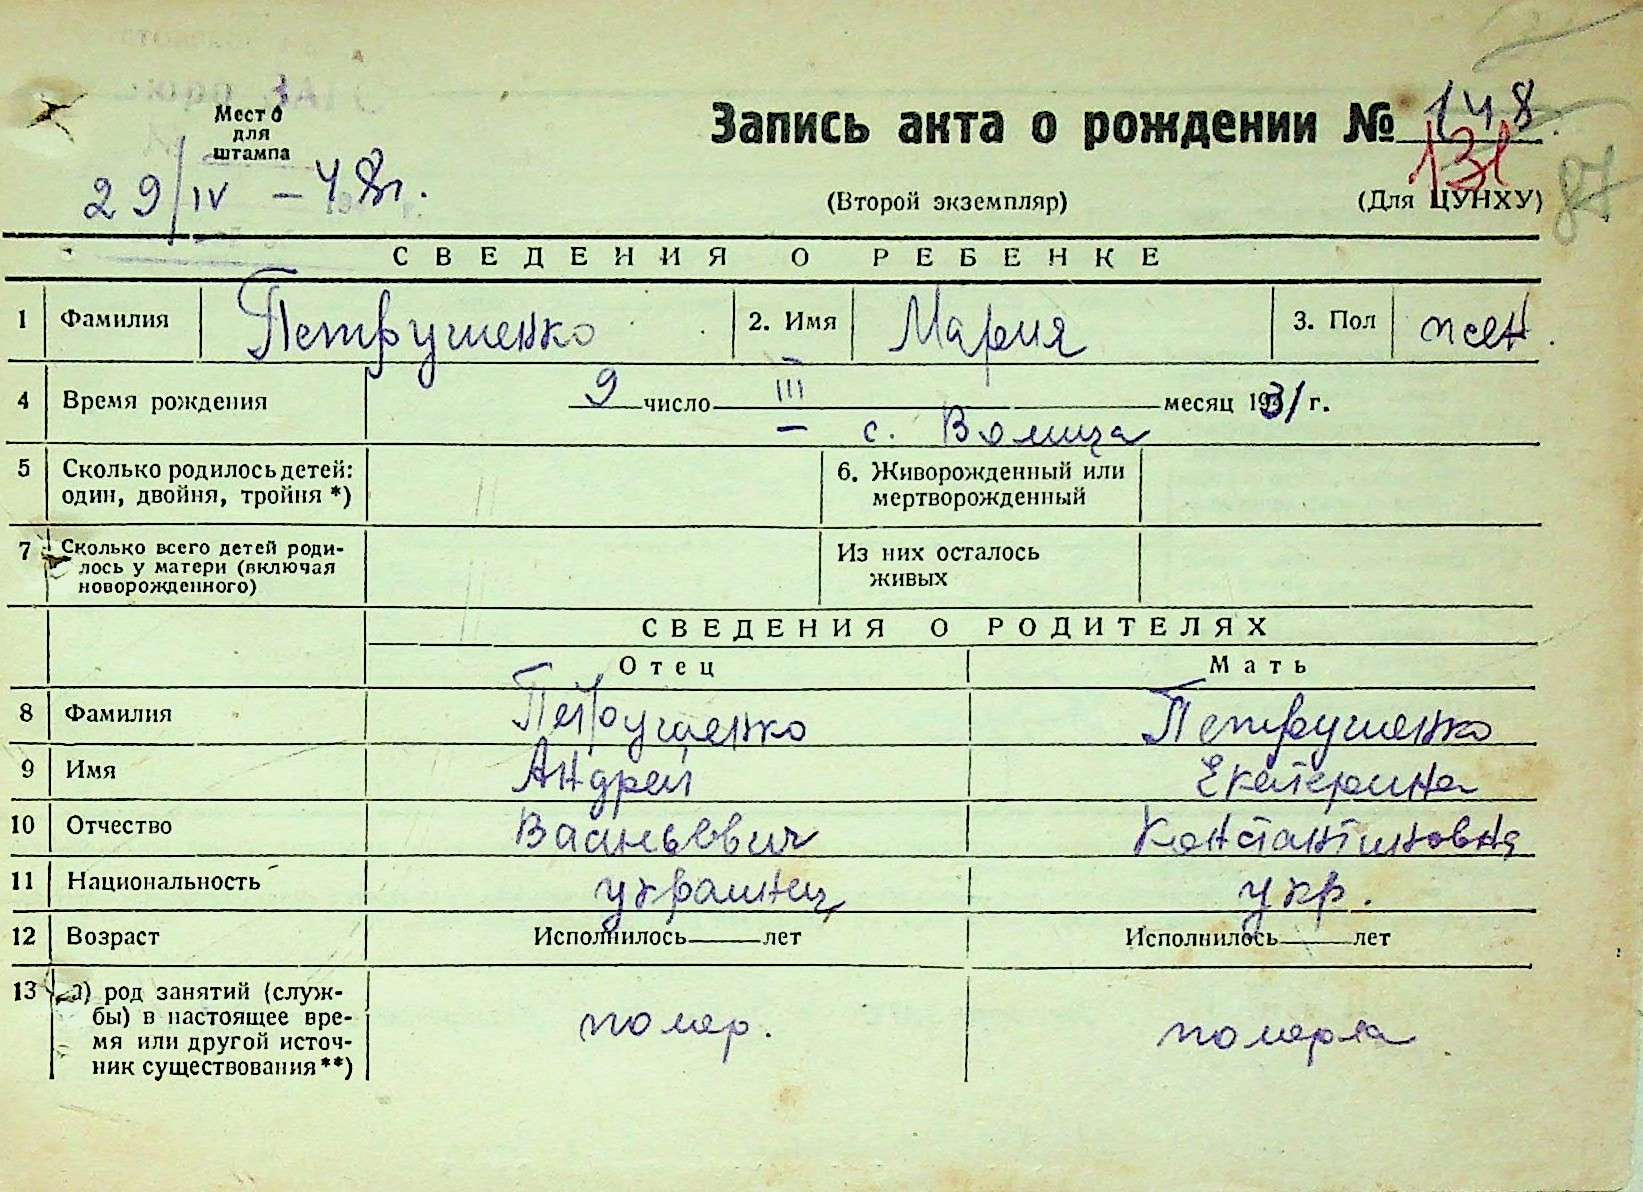 Бюро ЗАГС
Место
для
штампа
29/IV – 48г.
Запись акта о рождении № 148.
131
87
(Второй экземпляр)
(Для ЦУНХУ)
СВЕДЕНИЯ О РЕБЕНКЕ
1 Фамилия Петрушенко 2. Имя Мария 3. Пол жен.
4 Время рождения 9 число III месяц 1931 г.
с. Волица
5 Сколько родилось детей: 6. Живорожденный или
один, двойня, тройня *) мертворожденный
7 Сколько всего детей роди- Из них осталось
лось у матери (включая живых
новорожденного)
СВЕДЕНИЯ О РОДИТЕЛЯХ
Отец Мать
8 Фамилия Петрушенко Петрушенко
9 Имя Андрей Екатерина
10 Отчество Васильевич Константиновна
11 Национальность украинец укр.
12 Возраст Исполнилось лет Исполнилось лет
13 а) род занятий (служ-
бы) в настоящее вре- помер. померла
мя или другой источ-
ник существования **)